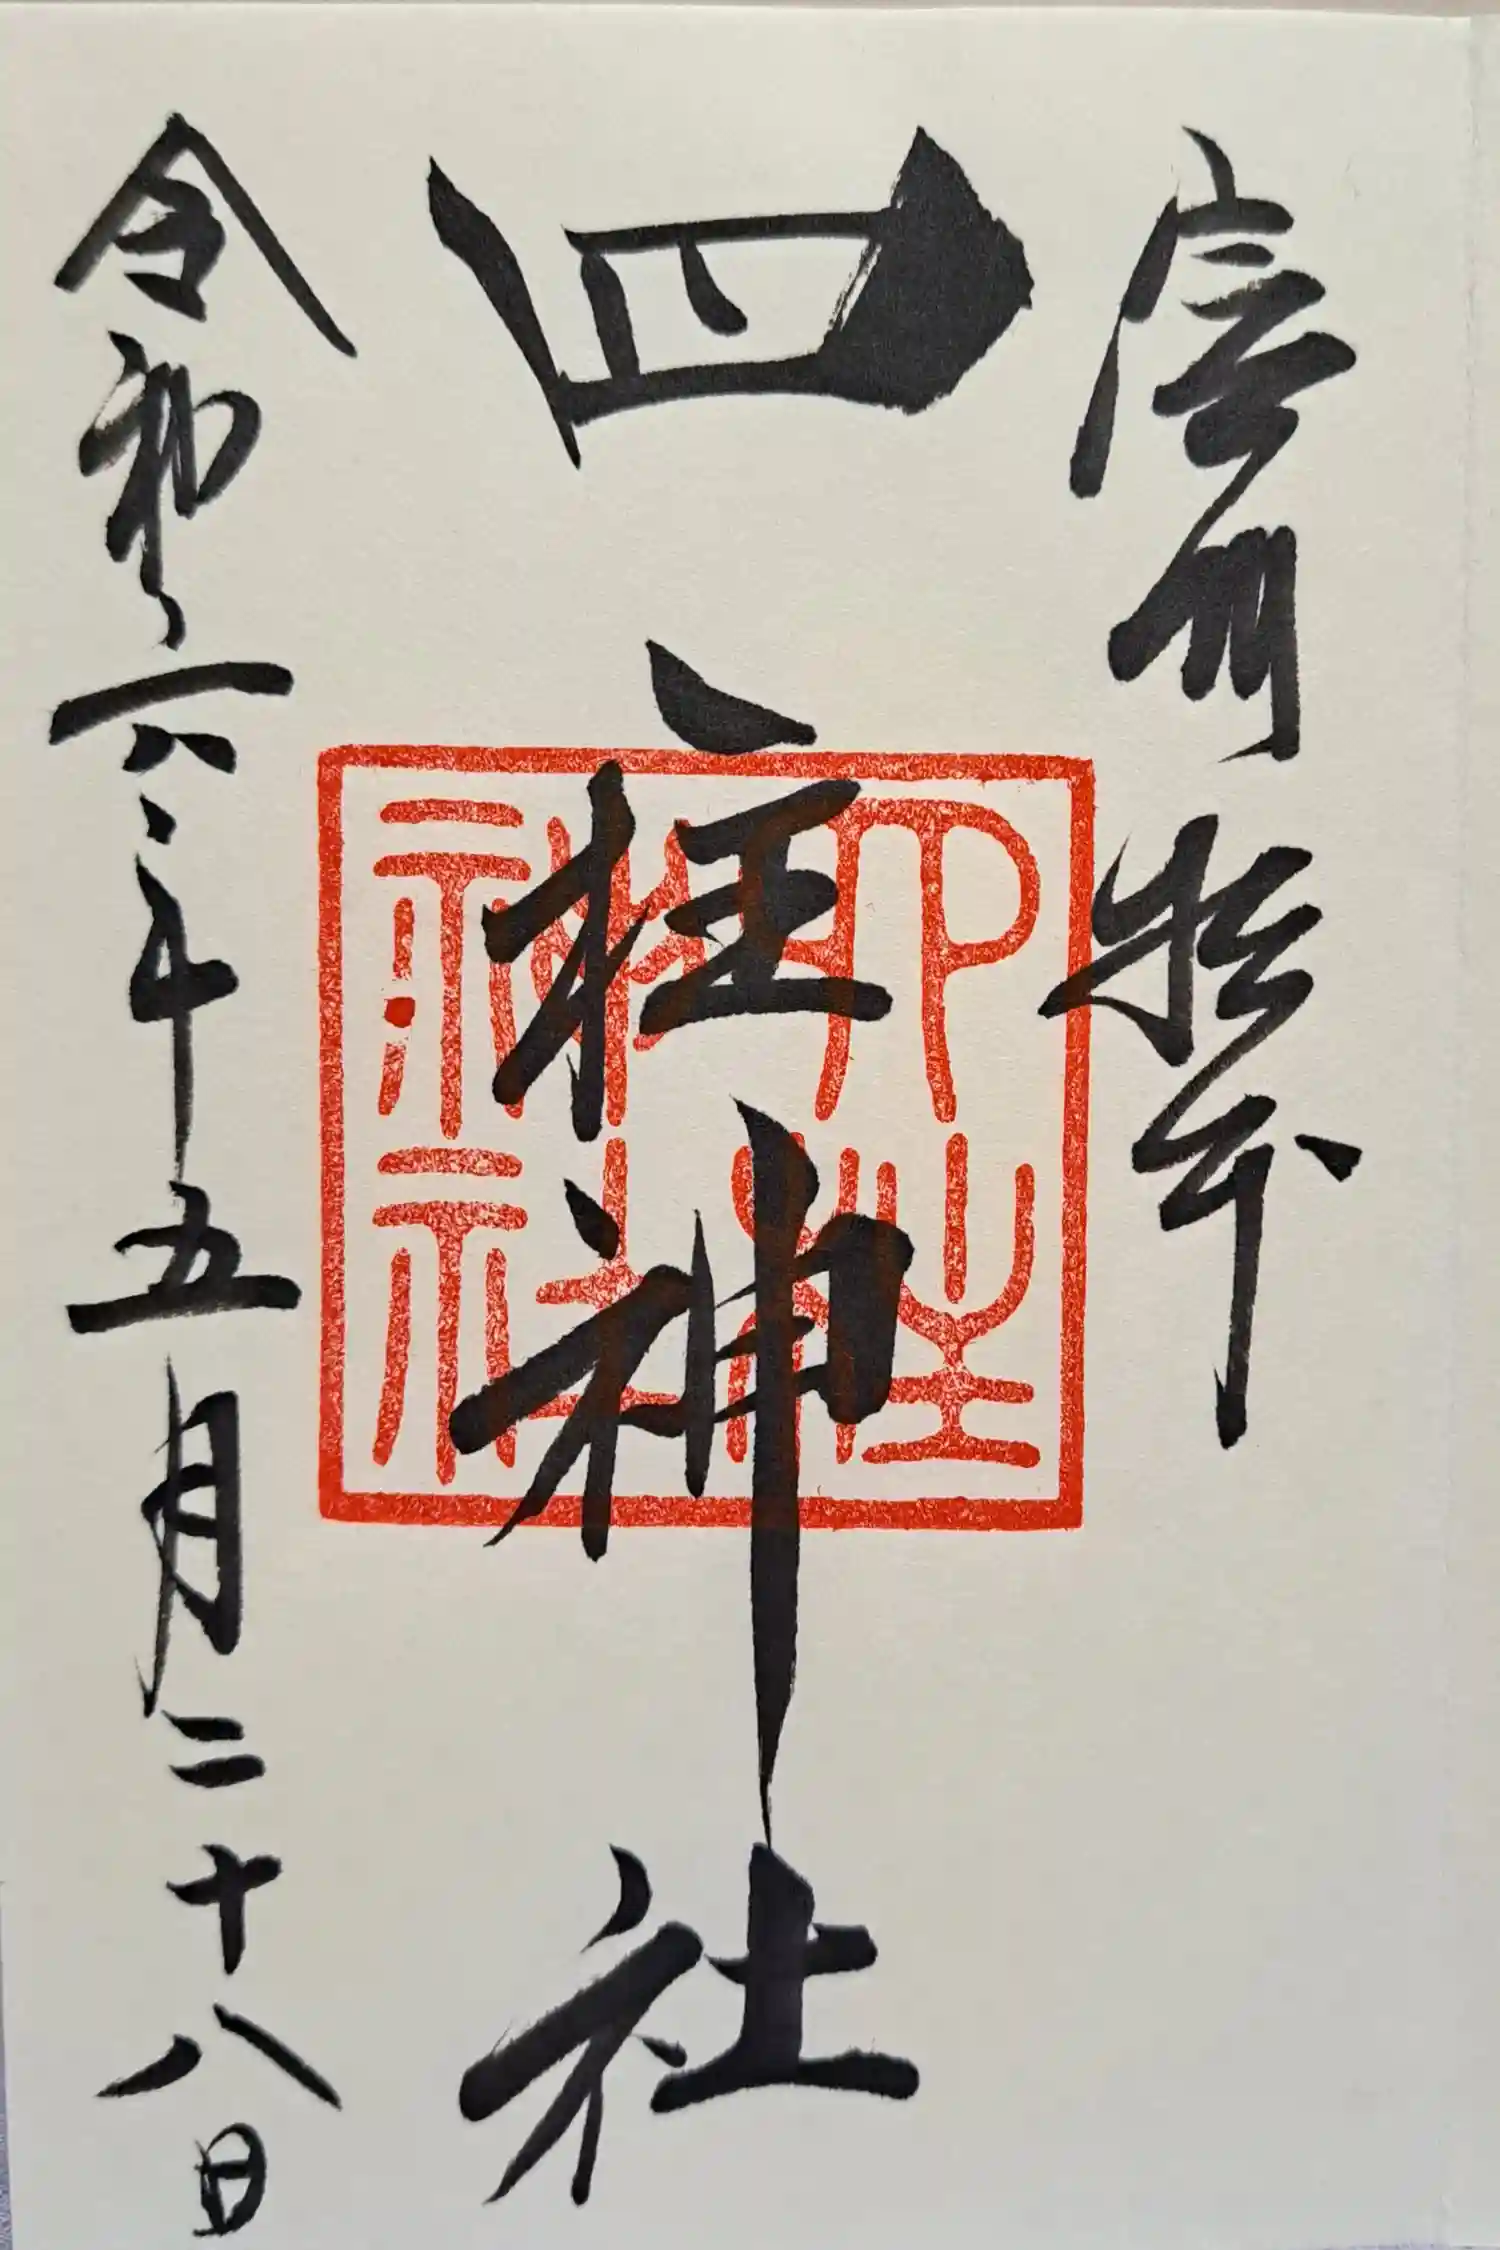 信州松本
四柱神社
四柱神社
令和六年五月二十八日